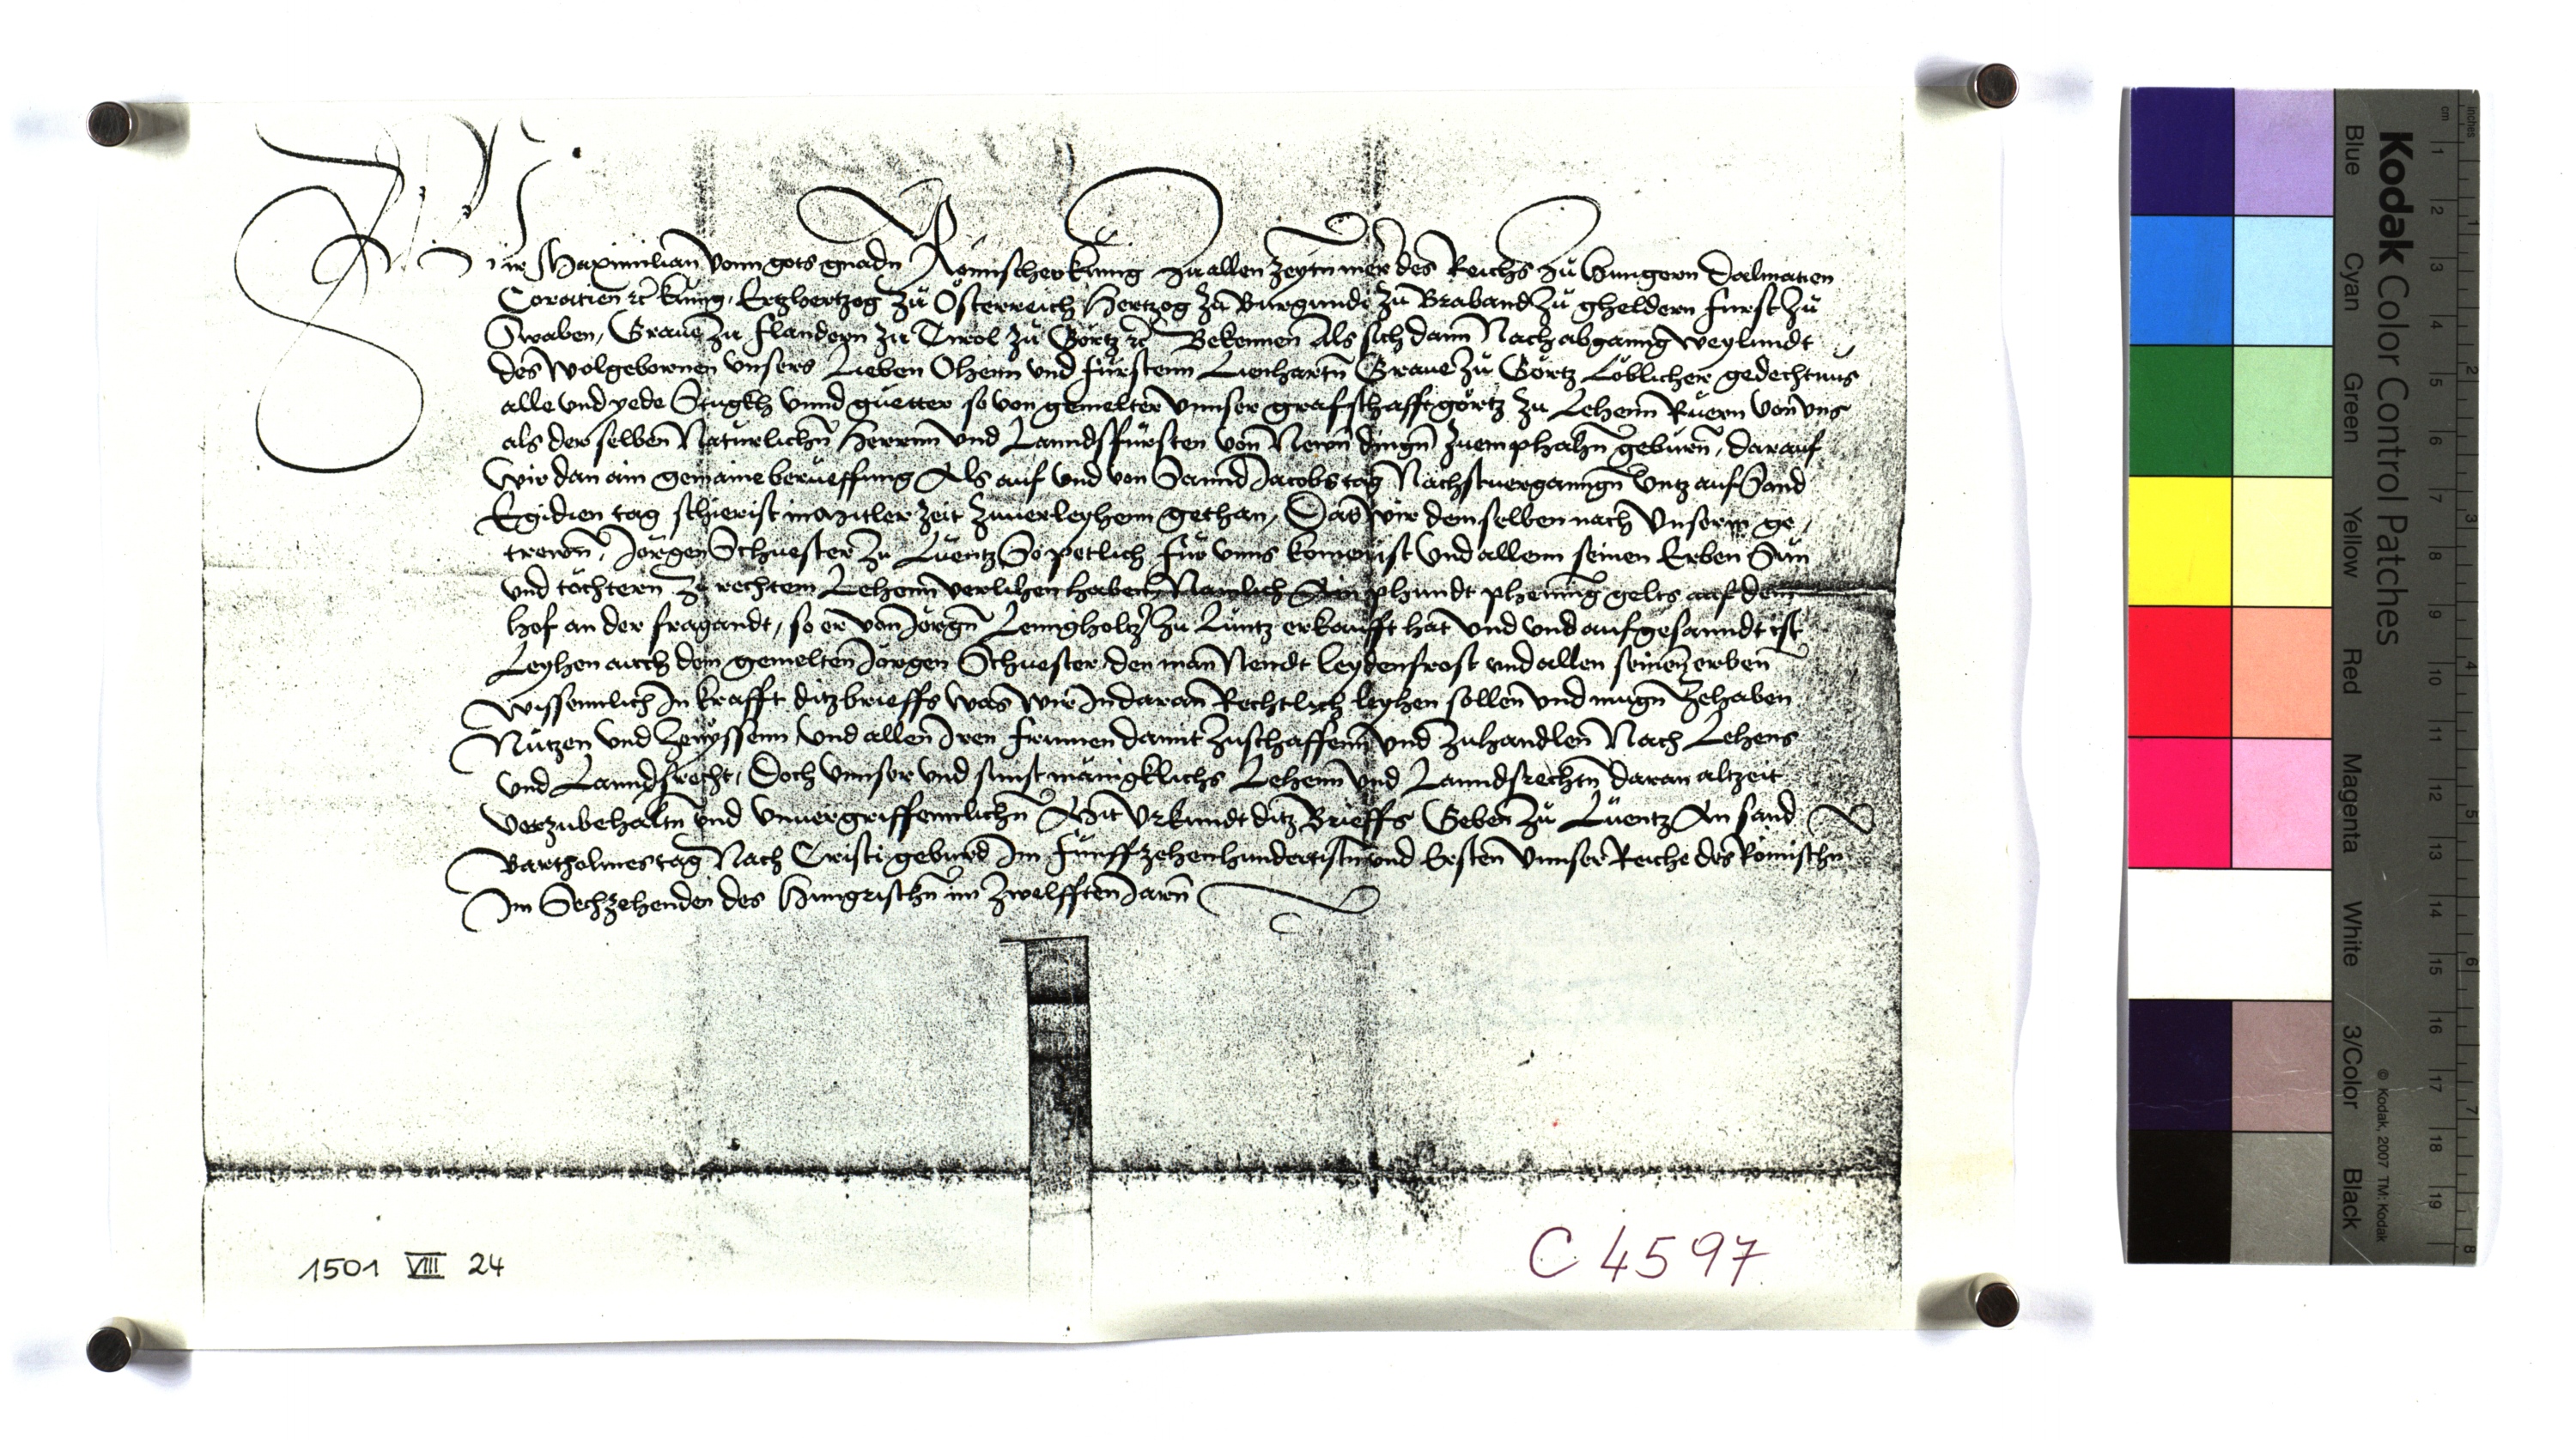 Wir Maximilian Vonn gots gnadn Römischer kunig zu allen Zeytn merer des Reichs zu Hungern Dalmatien
Coratien rc kunig, Ertzhertzog zu Österreich Hertzog zu Burgundi zu Braband zu gheldern furst zu
Swaben, Graue zu flandern zu Tirol zu Görtz rc Bekennen Als sich dann Nach abganng weylundt
des wolgebornnen vnsers Lieben Ohemn vnd fürstenn Lienhartn Graue zu Görtz Löblicher gedechtnus
alle vnd yede Stugkh vnnd guetter so von gemelter vnnser grafschafft görtz zu Lehenn Ruern von vns
als derselben Naturlichn Herrnn vnd Lanndsfürsten von Newn dingn zuemphahn geburn, darauf
wir dan ain gemaine berueffung Als auf vnd von Sannd Jacobs tag Nachstuerganngn Vntz auf Sand
Egidien tag schierist in mitler zeit zuuerleyhenn gethan, Das wir demselben nach Vnserm ge,
trewn, Jörgen Schuester zu Luentz So petlich für vnns komen ist Vnd allenn seinen Erben Sün
vnd töchtern zu rechtem Lehenn verlihen haben Namlich Ain phundt phenning gelts auf dem
hof an der fragandt, so er von Jörgn Lenngholtz zu Luntz erkaufft hat vnd vnd aufgesanndt ist
Leyhen auch dem gemelten Jörgen Schuester den man Nendt leydenfrost vnd allen seinen erben
wissennlich In krafft ditz brieffs was wir In daran Rechtlich leyhen sollen vnd mugn Zehaben
Nutzen vnd Zenyssenn vnd allen Iren frumen damit zuschaffenn vnd zuhandlen Nach Lehens
vnd Lanndsrecht, Doch vnnser vnd sunst mänigklichs Lehenn vnd Lanndsrechtn daran altzeit
verzubehaltn vnd vnuergriffennlichn Mit Vrkundt ditz Brieffs Geben zu Lüentz An sand
Bartholmes tag Nach Cristi geburd Im Funffzehenhundertistn vnd Ersten Vnnser Reiche des Römischn
Im Sechzehenden des Hungrischn im Zwelfften Jarn
1501 VIII 24
C 4597
Kodak Color Control Patches
© Kodak, 2007 TM: Kodak
Blue Cyan Green Yellow Red Magenta White 3/Color Black
cm 1 2 3 4 5 6 7 8 9 10 11 12 13 14 15 16 17 18 19
inches 1 2 3 4 5 6 7 8